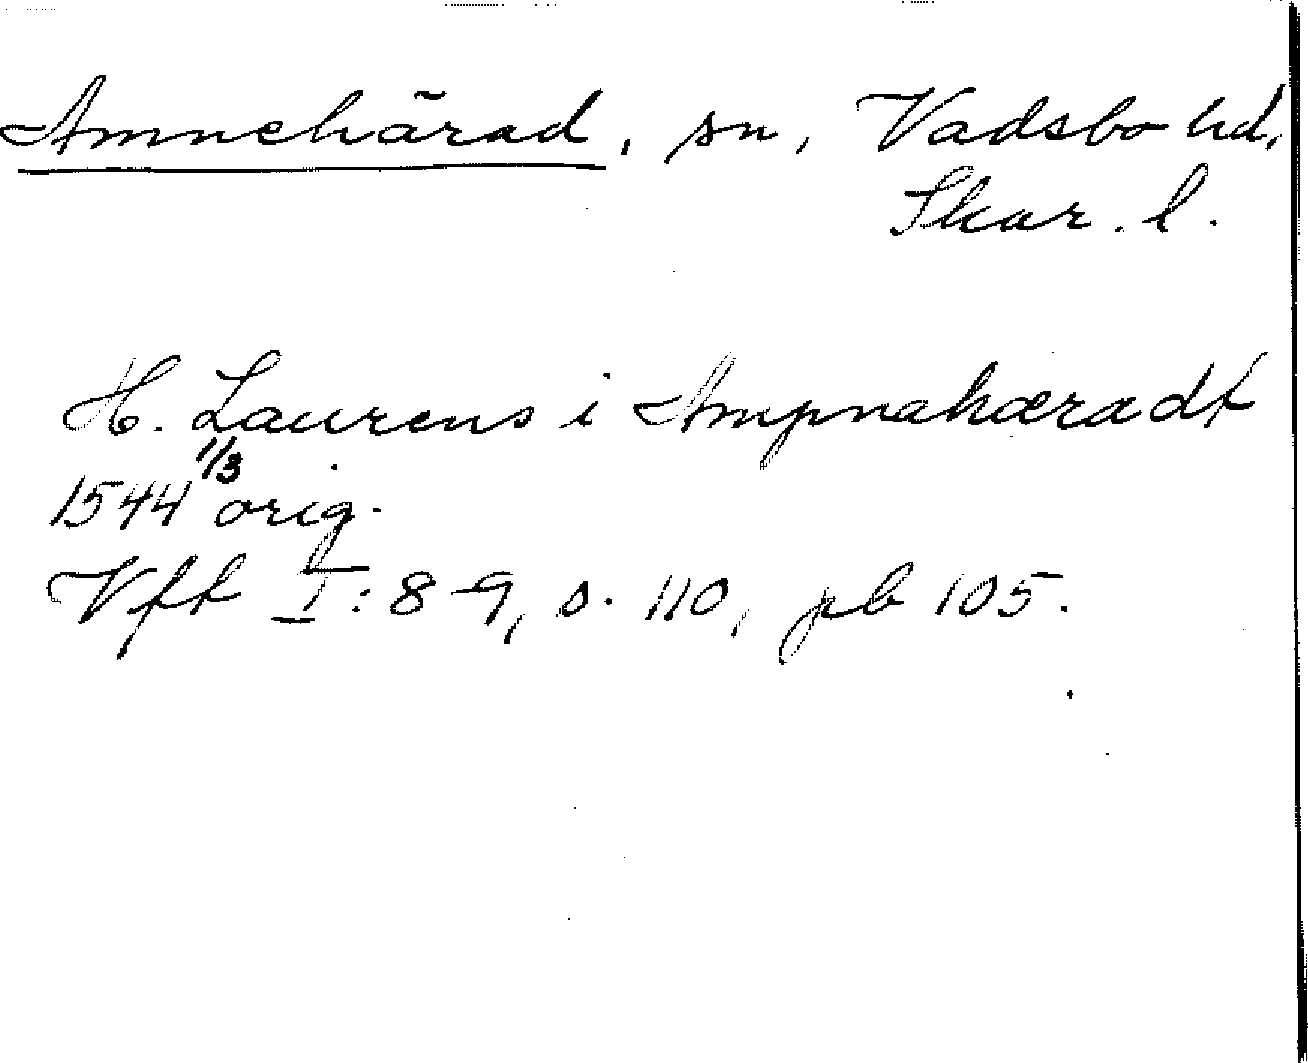 Amnehärad, sn, Vadsbo hd,
Skar. l.
H. Laurens i Ampnahæradt
1544 1/3 orig.
Vft I: 8-9, s. 110, pb 105.